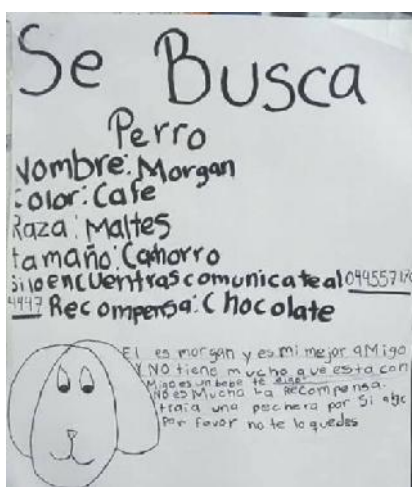 Se Busca
Perro
Nombre: Morgan
Color: Cafe
Raza: Maltes
tamaño: Cahorro
si lo encuentras comunicate al
4447 Recompensa: Chocolate
El es morgan y es mi mejor aMigo
Y NO tiene mucho que esta con
Migo es un bebe te
NO es Mucho La Recompensa.
traia una pechera por si algo
Por favor no te lo quedes